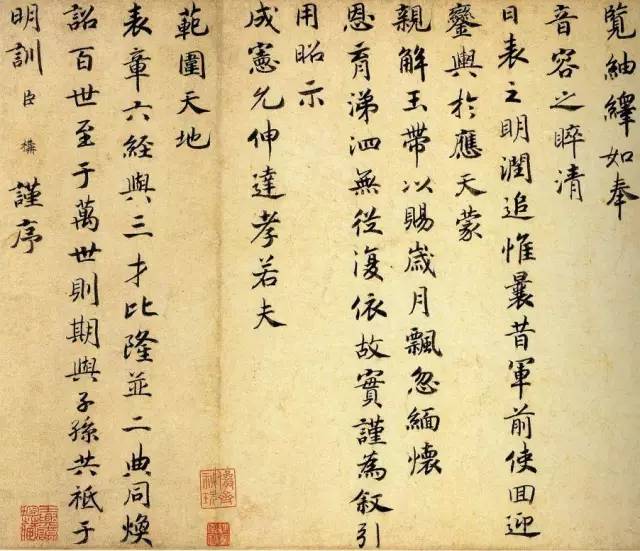 覧紬繹如奉
音容之睟清
日表之明潤追惟曩昔軍前使回迎
鑾輿於應天蒙
親解玉帶以賜歲月飄忽緬懷
恩育涕泗無從復依故實謹為敘引
用昭示
成憲允伸達孝若夫
範圍天地
表章六經與三才比隆並二典同煥
詔百世至于萬世則期與子孫共祗于
明訓臣構謹序